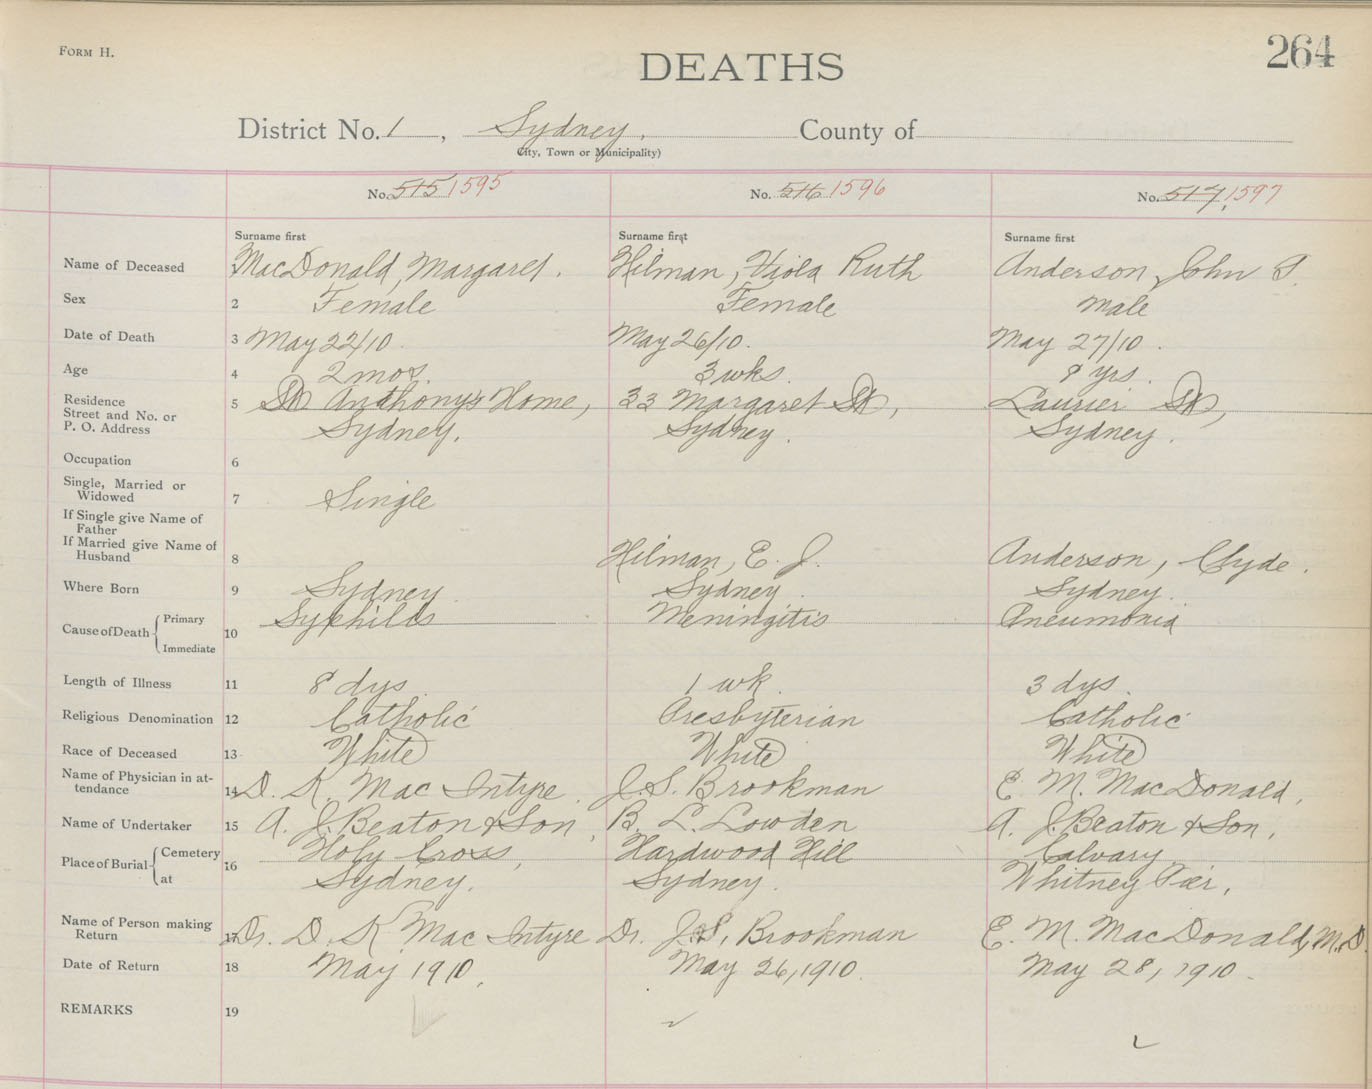 FORM H.
264
DEATHS
District No. 1, Sydney, County of
City, Town or Municipality)
No. 515 1595 No. 516 1596 No. 517, 1597
Surname first Surname first Surname first
Name of Deceased MacDonald, Margaret. Hilman, Viola Ruth Anderson, John
Sex 2 Female Female Male
Date of Death 3 May 22/10. May 26/10. May 27/10.
Age 4 2 mos. 3 wks. yrs.
Residence 5 St Anthony's Home, 33 Margaret St, Laurier St,
Street and No. or
P. O. Address Sydney. Sydney. Sydney.
Occupation 6
Single, Married or
Widowed 7 Single
If Single give Name of
Father
If Married give Name of
Husband 8 Hilman, E. J. Anderson, Clyde.
Where Born 9 Sydney. Sydney. Sydney.
Cause of Death { Primary Syphilis Meningitis Pneumonia
10
Immediate
Length of Illness 11 8 dys. 1 wk. 3 dys.
Religious Denomination 12 Catholic Presbyterian Catholic
Race of Deceased 13 White White White
Name of Physician in at-
tendance 14 D. K. MacIntyre. J. S. Brookman E. M. MacDonald,
Name of Undertaker 15 A. J. Beaton & Son, B. L. Lowden A. J. Beaton & Son,
Place of Burial { Cemetery 16 Holy Cross, Hardwood Hill Calvary
at Sydney. Sydney. Whitney Pier,
Name of Person making
Return 17 Dr. D. K. MacIntyre Dr. J. S. Brookman E. M. MacDonald, M.D.
Date of Return 18 May 1910. May 26, 1910. May 28, 1910.
REMARKS 19